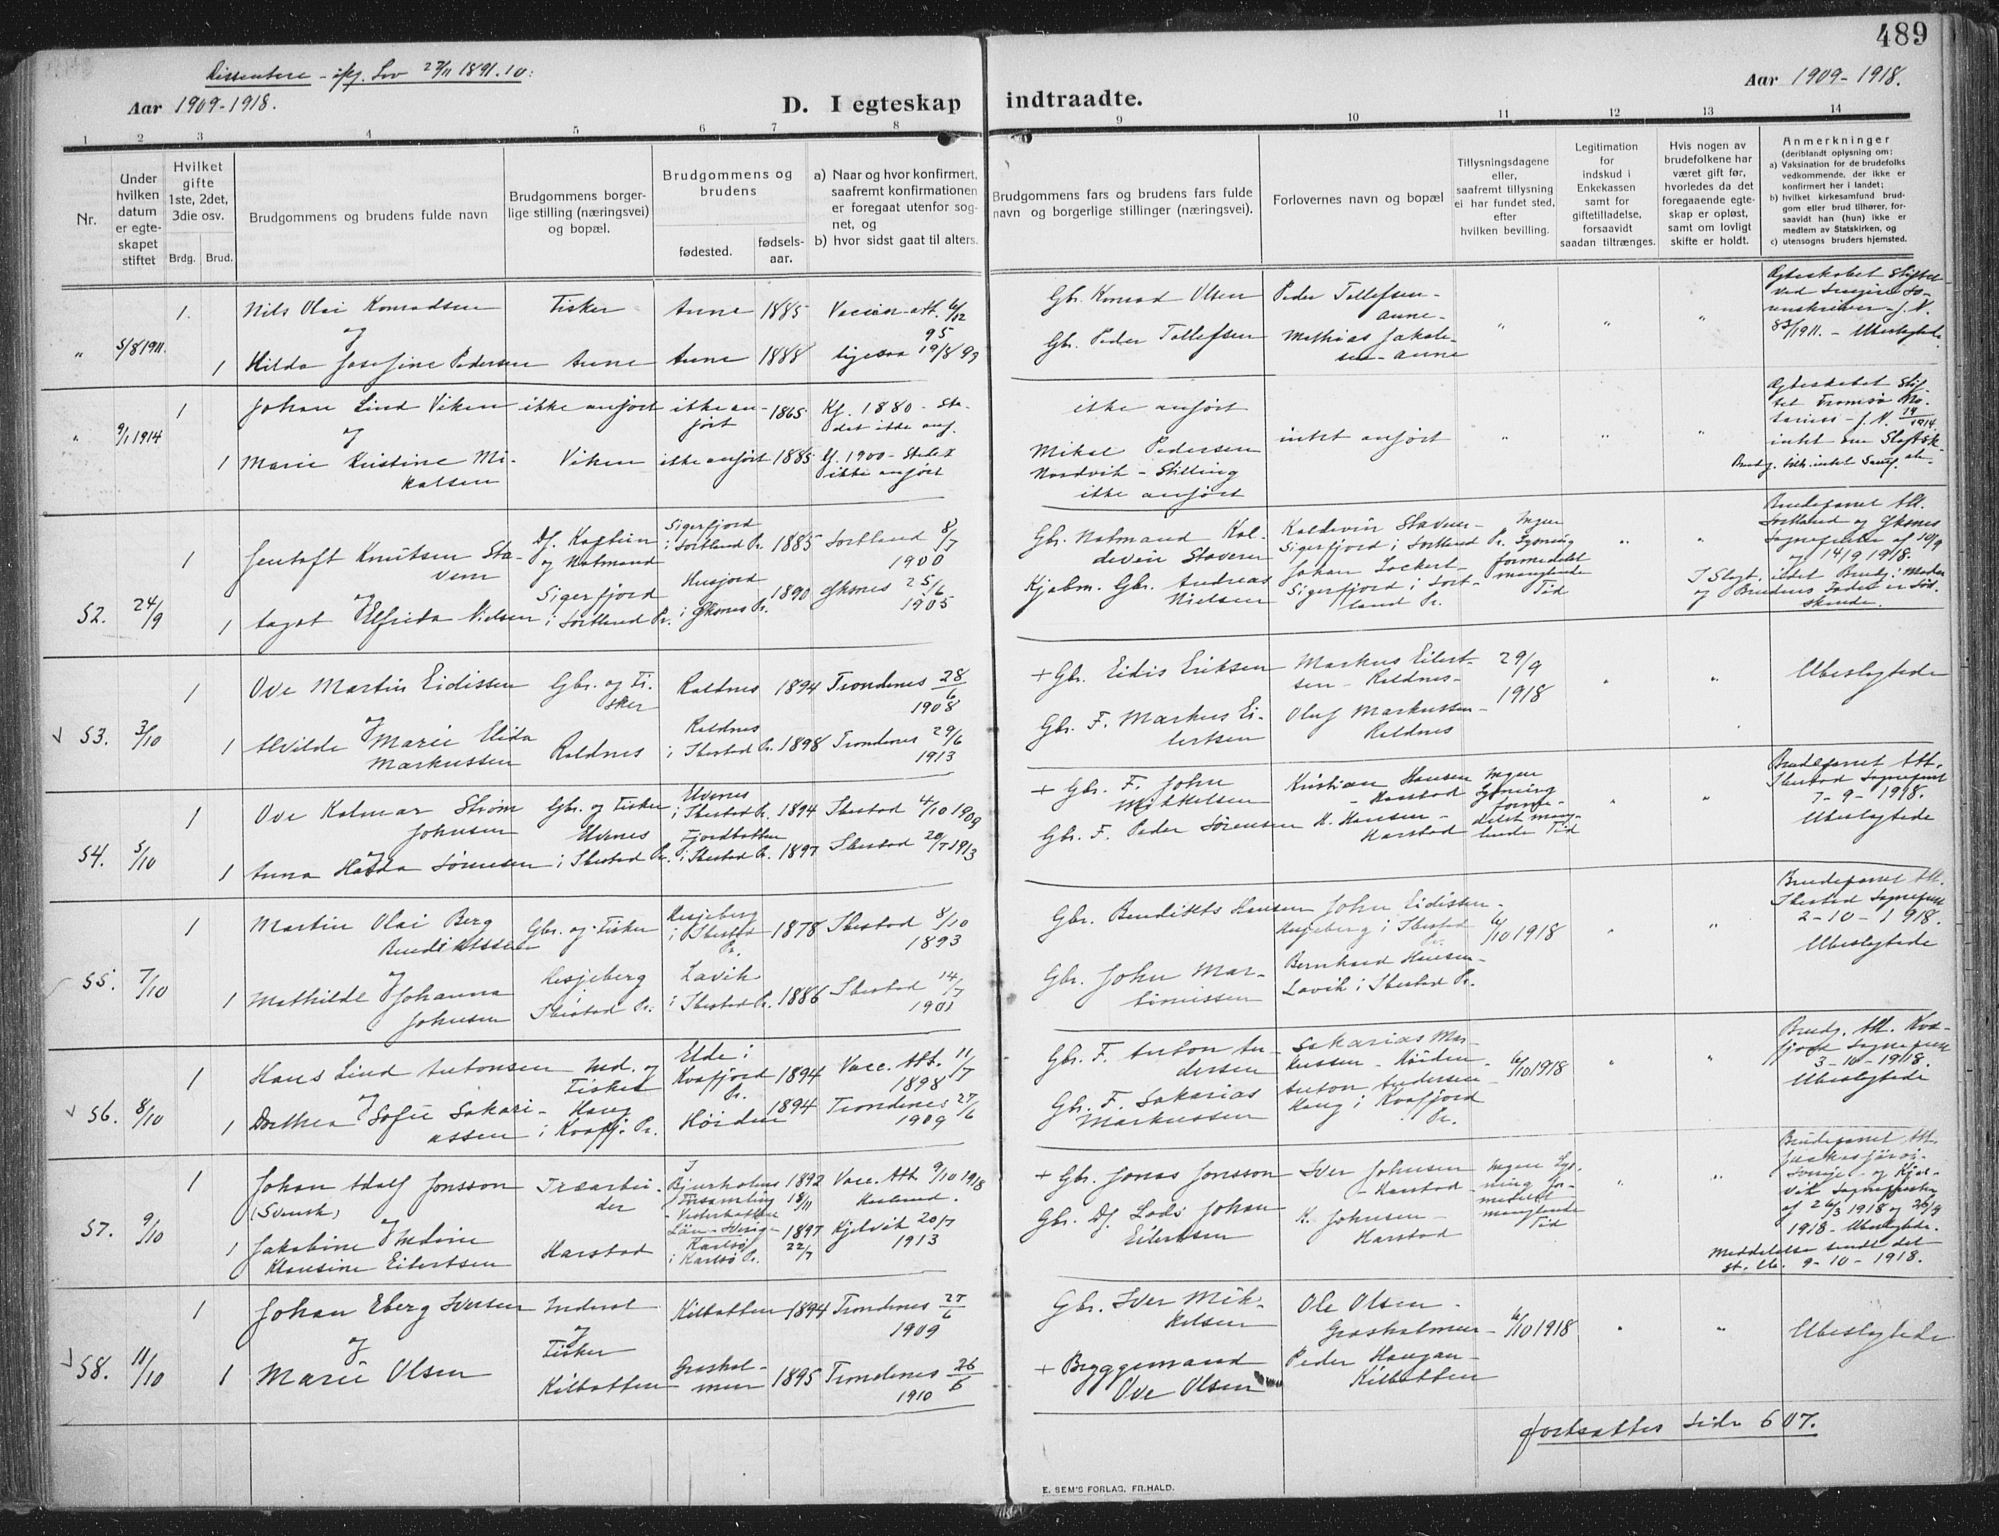 489
Dissentere - ifg. Lov 27/11 1891. 10:
Aar 1909-1918.
D. I egteskap indtraadte.
Aar 1909-1918.
1 2 3 4 5 6 7 8 9 10 11 12 13 14
Nr.
Under hvilken datum er egteskapet stiftet
Hvilket gifte 1ste, 2det, 3die osv.
Brdg. Brud.
Brudgommens og brudens fulde navn
Brudgommens borgerlige stilling (næringsvei) og bopæl.
Brudgommens og brudens
fødested.
fødselsaar.
a) Naar og hvor konfirmert, saafremt konfirmationen er foregaat utenfor sognet, og
b) hvor sidst gaat til alters.
Brudgommens fars og brudens fars fulde navn og borgerlige stillinger (næringsvei).
Forlovernes navn og bopæl
Tillysningsdagene eller, saafremt tillysning ei har fundet sted, efter hvilken bevilling.
Legitimation for indskud i Enkekassen samt for giftetilladelse, forsaavidt saadan tiltrænges.
Hvis nogen av brudefolkene har været gift før, hvorledes da det foregaaende egteskap er opløst, samt om lovligt skifte er holdt.
Anmerkninger
(deriblandt oplysning om:
a) Vaksination for de brudefolks vedkommende, der ikke er konfirmert her i landet;
b) hvilket kirkesamfund brudgom eller brud tilhører, forsaavidt han (hun) ikke er medlem av Statskirken, og
c) utensogns bruders hjemsted.
" 5/8 1911.
1. Nils Olai Konradsen Fisker Aune 1885 Vaccin. att. 6/12 95
og
1 Hilda Josefine Pedersen Aune Aune 1888 ligesaa 19/8 93
Gbr. Konrad Olsen
Gbr. Peder Tollefsen
Peder Tollefsen - Aune -
Mathias Jakobsen - Aune
" " "
Ægteskabet stiftet
1911. - Ubeslegtede
" 9/1 1914
1 Johan Lind Viken ikke anført ikke anført 1865 Kf. 1880 - Stedet ikke anf.
og
1 Marie Kristine Mikalsen Viken ikke anført 1885 Kf. 1900 - Stedet ikke anført
ikke anført
Mikal Pedersen
Nordvik - Stilling
ikke anført
intet anført
" " "
Ægteskabet stiftet Tromsø Notarius - J. N. 14/1914
intet om Slegtsk.
52. 24/9
1 Jentoft Knutsen Stavem
og
1 Aagot Elfrida Nielsen
Df. Kaptein og Notmand
Sigerfjord i Sortland Pr.
Sigerfjord i Sortland Pr. 1885 Sortland 8/7 1900
Husjord i Øksnes Pr. 1890 Øksnes 25/6 1905
Gbr. Notmand Kaldevin Stavem
Kjøbm. Gbr. Andreas Nielsen
Kaldevin Stavem - Sigerfjord i Sortland Pr.
Johan Lockert - Sigerfjord i Sortland Pr.
Ingen Lysning formedelst manglende Tid
" "
Brudeparret Att. Sortland og Øksnes Sognepræster af 10/9 og 14/9 1918.
I Slegt. idet Brudg. Moder og Brudens Fader er Søskende.
53. 3/10
1 Ove Martin Eidissen
og
1 Alvilde Marie Elida Markussen
Gbr. og Fisker
Roldnes
Roldnes 1894 Trondenes 28/6 1908
Roldnes i Ibestad Pr. 1898 Trondenes 29/6 1913
+ Gbr. Eidis Eriksen
Gbr. F. Markus Eilertsen
Markus Eilertsen - Roldnes -
Oluf Markussen - Roldnes
29/9 1918
" "
Ubeslegtede
54. 5/10
1 Ove Kalmar Strøm Johnsen
og
1 Anna Halda Sørensen
Gbr. og Fisker
Elvenes i Ibestad Pr.
Elvenes i Ibestad Pr. 1894 Ibestad 4/10 1909
Fjordbotten i Ibestad Pr. 1897 Ibestad 20/7 1913
+ Gbr. F. John Mikkelsen
Gbr. F. Peder Sørensen
Kristian Hansen - Harstad
K. Hansen - Harstad
Ingen Lysning formedelst manglende Tid
" "
Brudeparret Att. Ibestad Sognepræst 7-9-1918.
Ubeslegtede
55. 7/10
1 Martin Olai Berg Bendiktssen
og
1 Mathilde Johanna Johnsen
Gbr. og Fisker
Kesjeberg Ibestad Pr.
Kesjeberg i Ibestad Pr. 1878 Ibestad 8/10 1893
Lavik i Ibestad Pr. 1886 Ibestad 14/7 1901
Gbr. Bendikts Hansen
Gbr. John Martinissen
John Eidissen - Kesjeberg i Ibestad Pr.
Bernhard Hansen - Lavik i Ibestad Pr.
6/10 1918
" "
Brudeparret Att. Ibestad Sognepræst 2-10-1918.
Ubeslegtede
56. 8/10
1 Hans Lind Antonsen
og
1 Dorthea Sofie Sakariassen
Ind. og Fisker
Haug i Kvæfj. Pr.
Elde i Kvæfjord Pr. 1894 Vacc. Att. 11/7 1898
Høiden 1894 Trondenes 27/6 1909
Gbr. F. Anton Andersen
Gbr. F. Sakarias Markussen
Sakarias Markussen - Høiden -
Anton Andersen - Haug i Kvæfjord Pr.
6/10 1918
" "
Brudg. Att. Kvæfjord Sognepræst 3-10-1918.
Ubeslegtede
57. 9/10
1 Johan Adolf Jonsson
(Svensk)
og
1 Jakobine Indine Klausine Eilertsen
Træarbeider
Harstad
I Bjurholms Församling - Vesterbotten Län - Sverige 1892 18/11 Vacc. Att. 9/10 1918 Harstad.
Karlsø i Karlsø Pr. 1897 22/7 Kjelvik 20/7 1913
+ Gbr. Jonas Jonsson
Gbr. Df. Lods Johan Eilertsen
Iver Johnsen - Harstad -
K. Johnsen - Harstad
Ingen Lysning formedelst manglende Tid
" "
Brudeparret Att. Jukkasjärvi - Sverige - og Kjelvik Sognepræster af 26/3 1918 og 26/9 1918 - Ubeslegtede.
Meddelelse sendt det st. Cb. 9-10-1918.
58. 11/10
1 Johan Eberg Iversen
og
1 Marie Olsen
Inderst og Fisker
Kilbotten
Kilbotten 1894 Trondenes 27/6 1909
Grasholmen 1895 Trondenes 26/6 1910
Gbr. Iver Mikkelsen
+ Byggemand Ove Olsen
Ole Olsen - Grasholmen -
Peder Haugan - Kilbotten
6/10 1918
" "
Ubeslegtede
fortsættes side 607.
E. SEM'S FORLAG, FR.HALD.